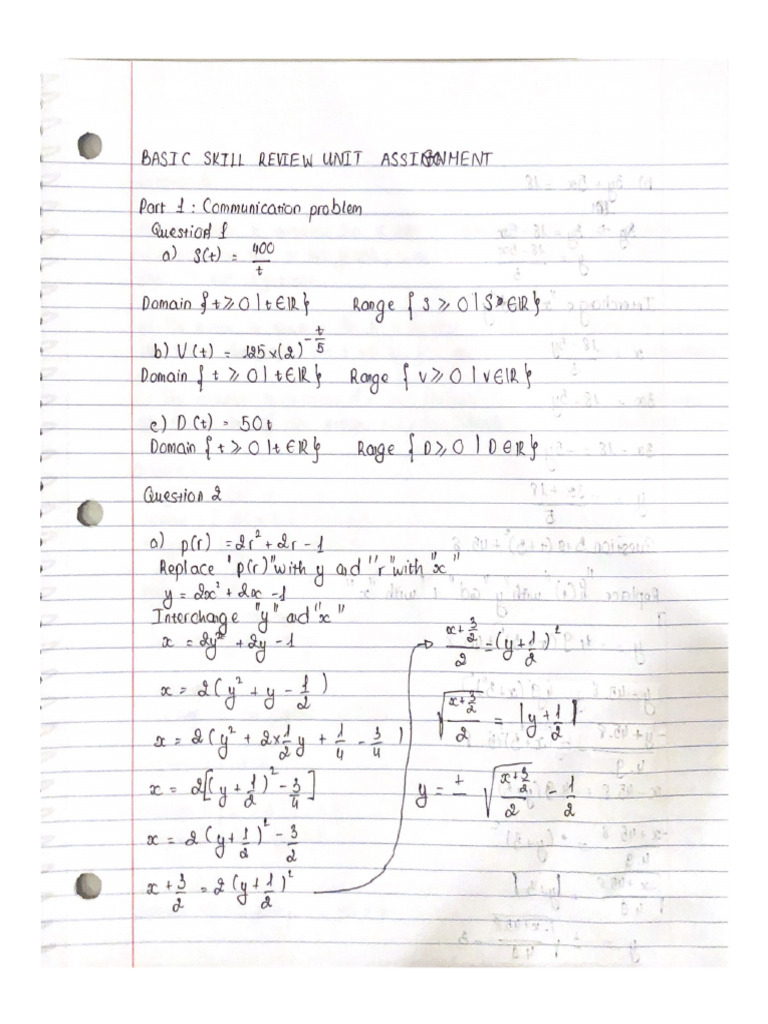 BASIC SKILL REVIEW UNIT ASSIGNMENT
Part 1 : Communication problem
Question 1
a) S(t) = 400/t
Domain { t ⩾ 0 | t ∈ IR } Range { S ⩾ 0 | S ∈ IR }
b) V(t) = 125 × (2)^(-t/5)
Domain { t ⩾ 0 | t ∈ IR } Range { V ⩾ 0 | V ∈ IR }
c) D(t) = 50t
Domain { t ⩾ 0 | t ∈ IR } Range { D ⩾ 0 | D ∈ IR }
Question 2
a) p(r) = 2r² + 2r - 1
Replace "p(r)" with y and "r" with "x"
y = 2x² + 2x - 1
Interchange "y" and "x"
x = 2y² + 2y - 1
x = 2(y² + y - 1/2)
x = 2(y² + 2×1/2 y + 1/4 - 3/4)
x = 2[(y + 1/2)² - 3/4]
x = 2(y + 1/2)² - 3/2
x + 3/2 = 2(y + 1/2)²
→ (x + 3/2)/2 = (y + 1/2)²
√((x + 3/2)/2) = |y + 1/2|
y = ± √((x + 3/2)/2) - 1/2